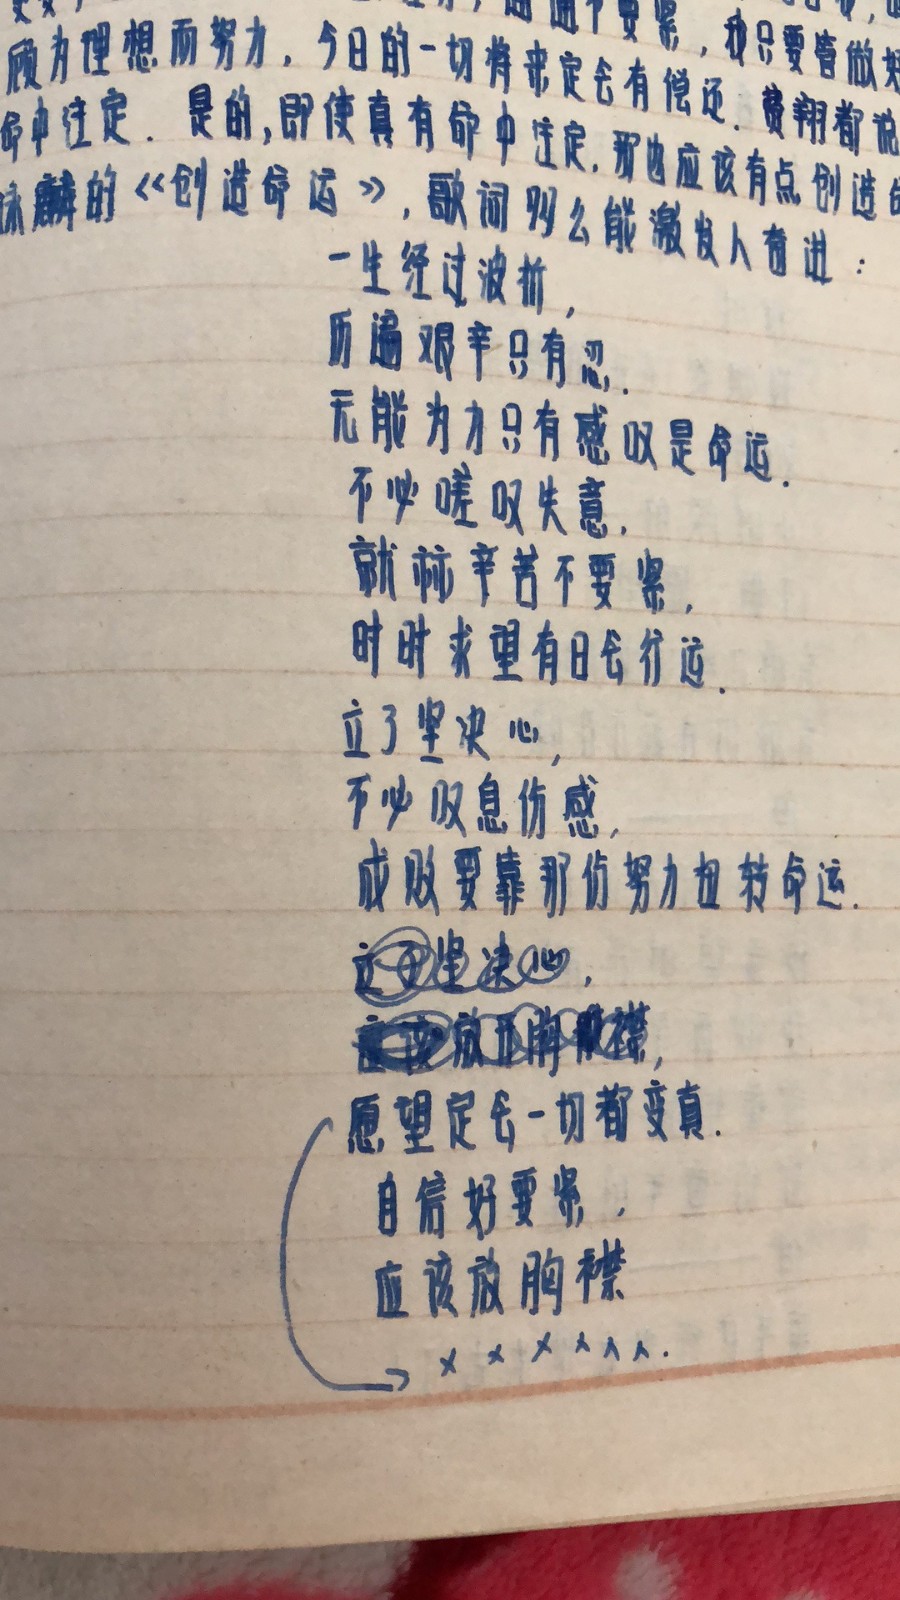 不要紧，我只要管做好
顾为理想而努力，今日的一切将来定会有偿还．费翔都说
命中注定．是的，即使真有命中注定，那也应该有点创造的
咏麟的《创造命运》，歌词多么能激发人奋进：
一生经过波折，
历遍艰辛只有忍．
无能为力只有感叹是命运．
不必嗟叹失意，
就标辛苦不要紧，
时时求望有日会行运．
立了坚决心，
不必叹息伤感，
成败要靠那份努力扭转命运．
立了坚决心，
应该放开胸襟，
愿望定会一切都变真．
自信好要紧，
应该放胸襟
××××××．